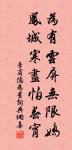 為有雲屏無限嬌
鳳城寒盡怕春宵
李商隱為有